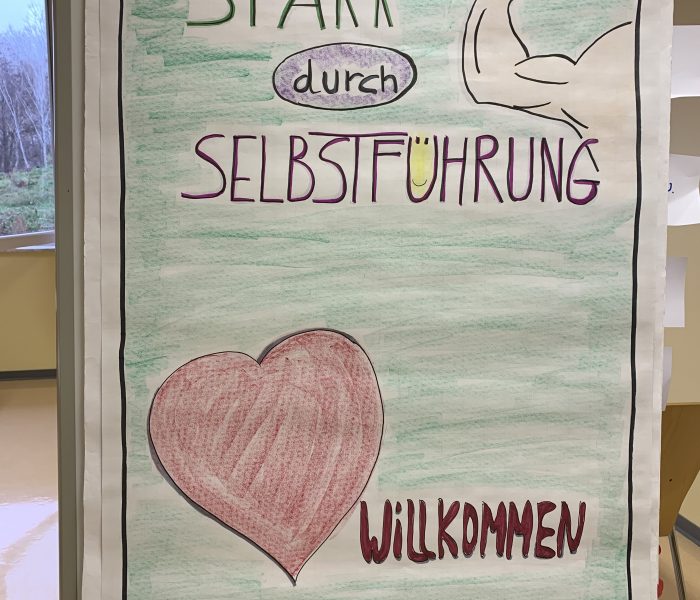 STARK
durch
SELBSTFÜHRUNG
WiLLKOMMEN